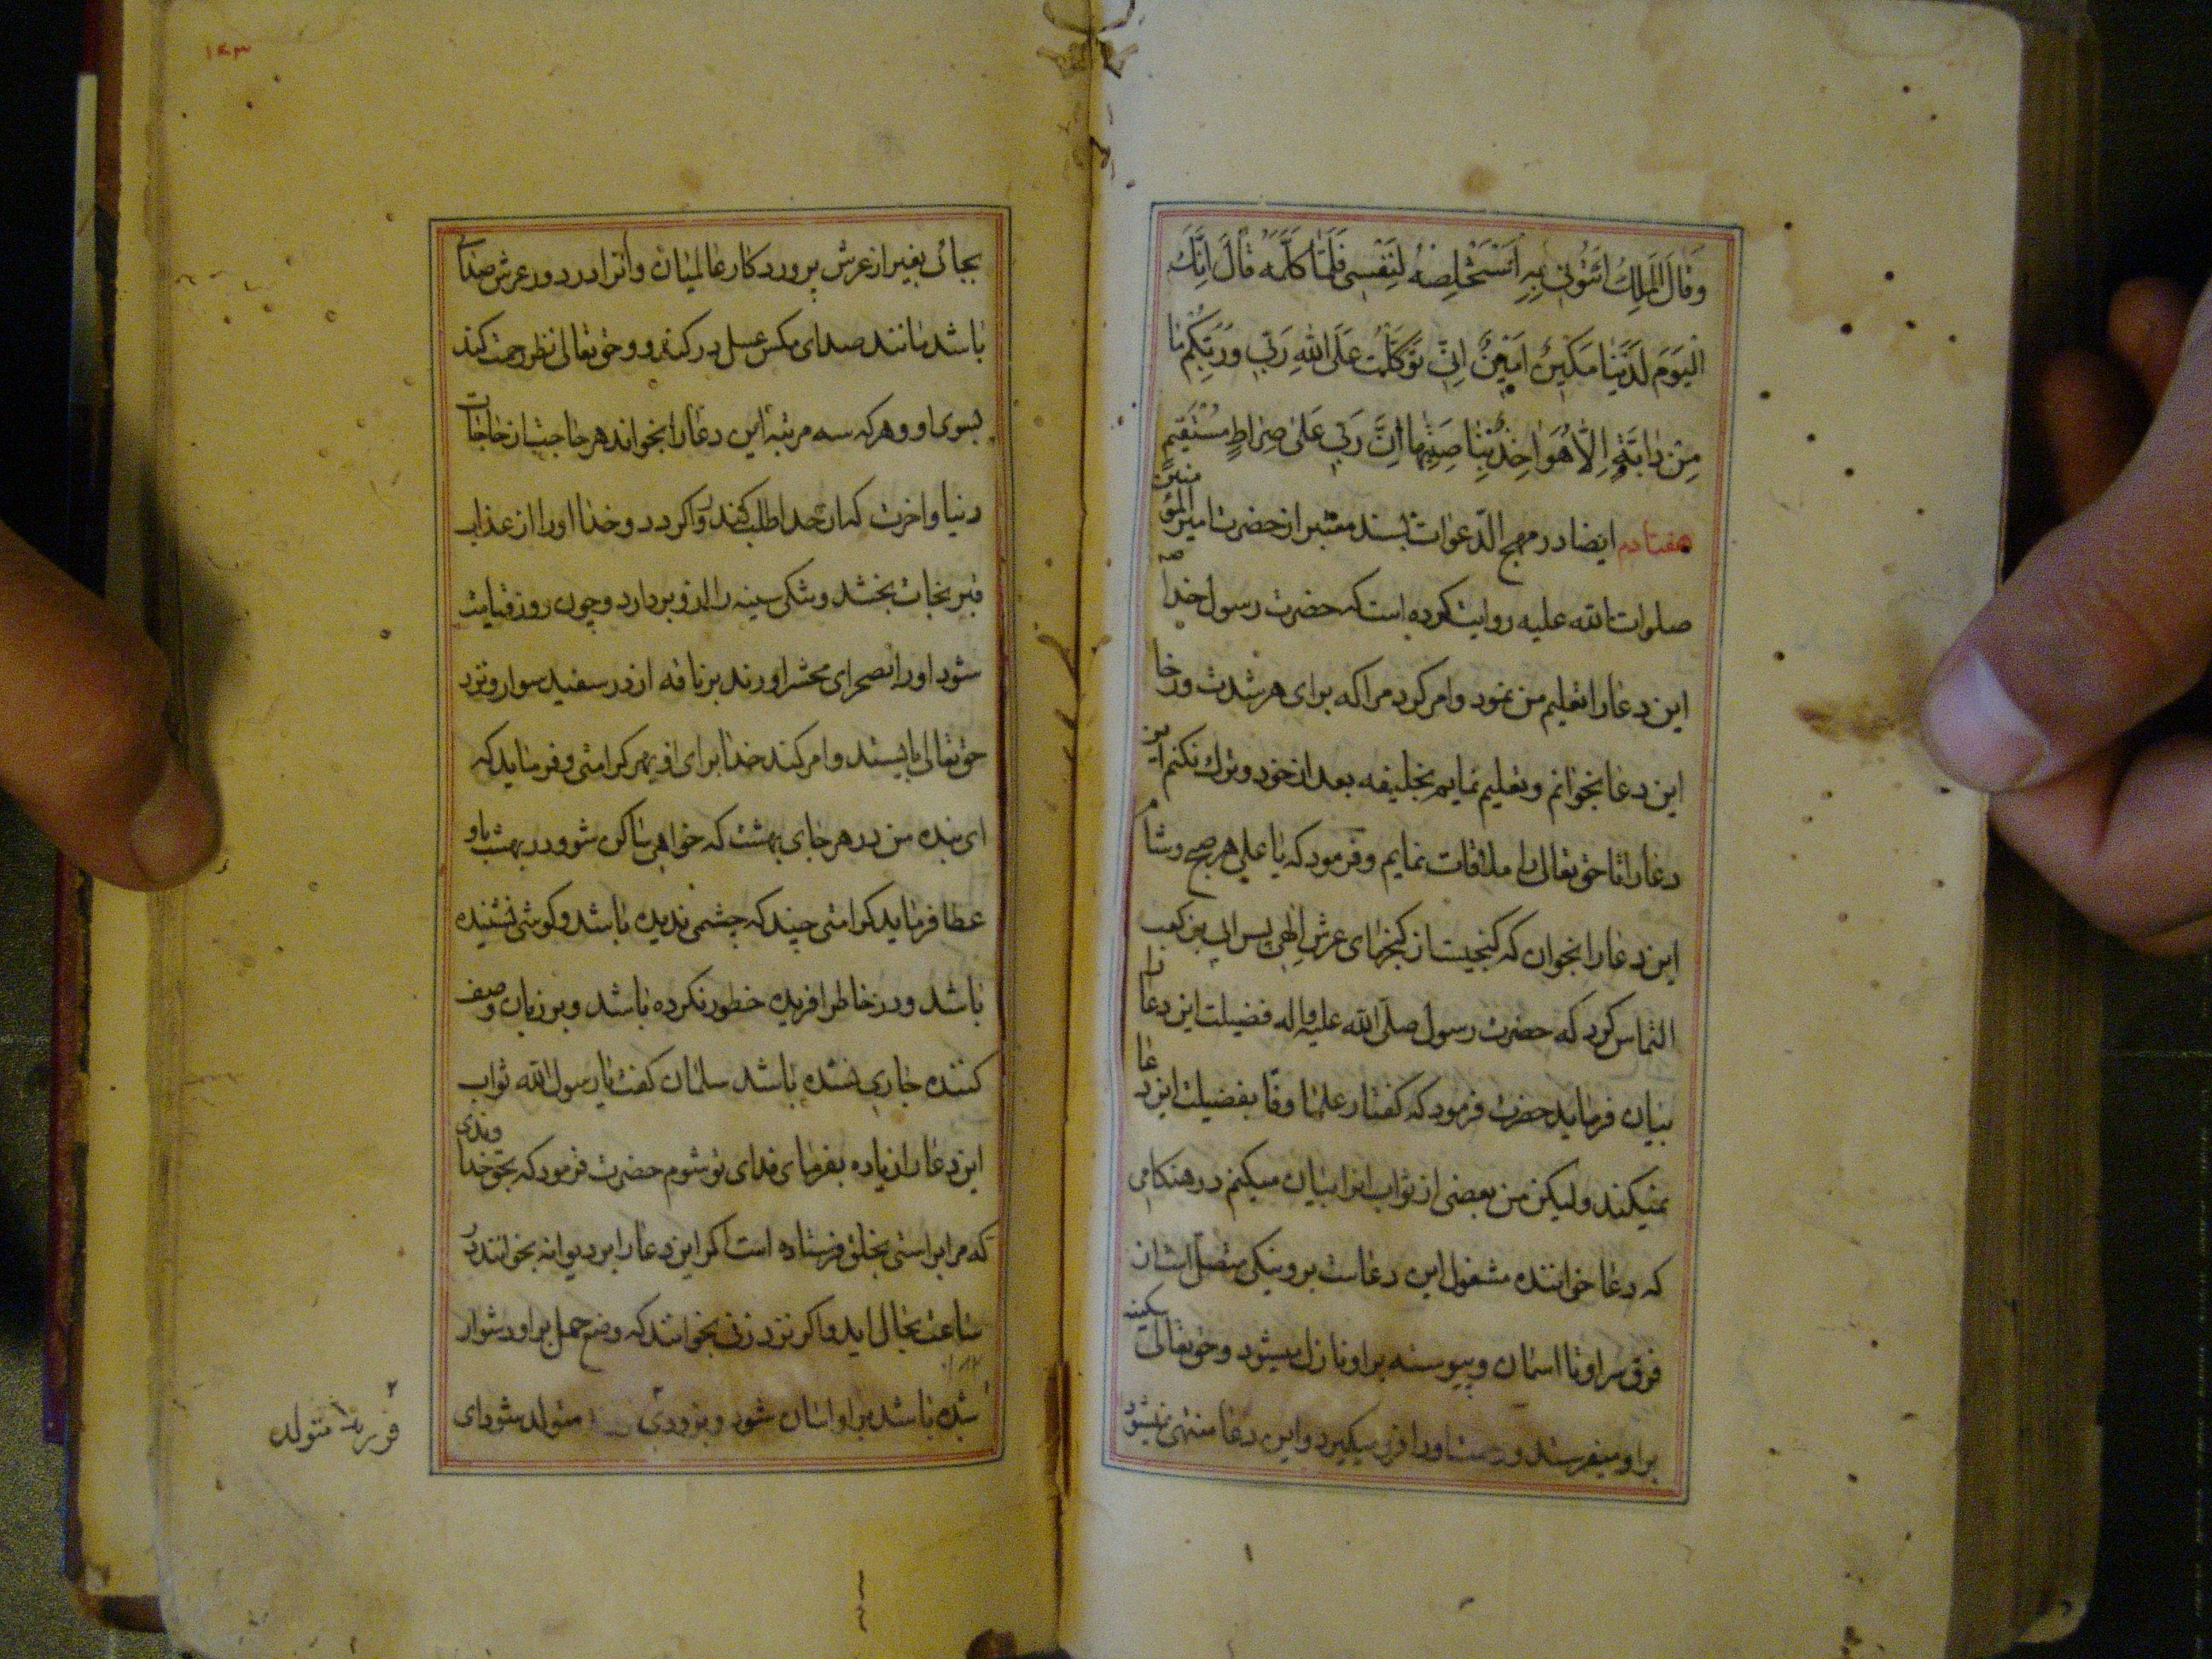 وَقَالَ الْمَلِكُ ائْتُونِي بِهِ اَسْتَخْلِصْهُ لِنَفْسِي فَلَمَّا كَلَّمَهُ قَالَ اِنَّكَ
الْيَوْمَ لَدَيْنَا مَكِينٌ اَمِينٌ اِنِّي تَوَكَّلْتُ عَلَى اللهِ رَبِّي وَرَبِّكُمْ مَا
مِنْ دَابَّةٍ اِلَّا هُوَ اٰخِذٌ بِنَاصِيَتِهَا اِنَّ رَبِّي عَلىٰ صِرَاطٍ مُسْتَقِيمٍ
هفتادم ایضا در مهج الدّعوات بسند معتبر از حضرت امیر المؤمنین
صلوات الله علیه روایت کرده است که حضرت رسول خدا ص
این دعا را تعلیم من نمود و امر کرد مرا که برای هر شدت و رخا
این دعا بخوانم و تعلیم نمایم بخلیفه بعد از خود و ترک نکنم این
دعا را تا حق تعالی را ملاقات نمایم و فرمود که یا علی هر صبح و شام
این دعا را بخوان که گنجیست از گنجهای عرش الٰهی پس ابی بن کعب
التماس کرد که حضرت رسول صلّی الله علیه و اله فضیلت این دعا را
بیان فرماید حضرت فرمود که گفتار علما وفا بفضیلت این دعا
نمیکند ولیکن من بعضی از ثواب انرا بیان میکنم در هنکامی
که دعا خواننده مشغول این دعاست بر و نیکی متصل است از
فوق سر او تا اسمان و پیوسته بر او نازل میشود و حق تعالی سکینه
بر او میفرستد و رحمت او را فرو میگیرد و این دعا منتهی نمیشود
۱۴۳
بجائی بغیر از عرش پروردکار عالمیان و انرا در دور عرش صدائی
باشد مانند صدای مکس عسل در کندو و حق تعالی نظر رحمت کند
بسوی او و هر که سه مرتبه این دعا را بخواند هر حاجت از حاجات
دنیا و اخرت که از خدا طلب کند روا کردد و خدا او را از عذاب
قبر نجات بخشد و تنکی سینه را از او بردارد و چون روز قیامت
شود او را بصحرای محشر اورند بر ناقه از در سفید سوار و نزد
حق تعالی بایستد و امر کند خدا برای او بهر کرامتی و فرماید که
ای بنده من در هر جای بهشت که خواهی ساکن شو و در بهشت باو
عطا فرماید کرامتی چند که چشمی ندیده باشد و کوشی نشنیده
باشد و در خاطر افریده خطور نکرده باشد و بر زبان وصف
کننده جاری نشده باشد سلمان کفت یا رسول الله ثواب
این دعا را زیاده بفرمای فدای تو شوم حضرت فرمود که بحق خداوندی
که مرا براستی بخلق فرستاده است اکر این دعا را بر دیوانه بخوانند در
ساعت بحال اید و اکر نزد زنی بخوانند که وضع حمل بر او دشوار
شده باشد بر او اسان شود و بزودی متولد شود ای
متولد